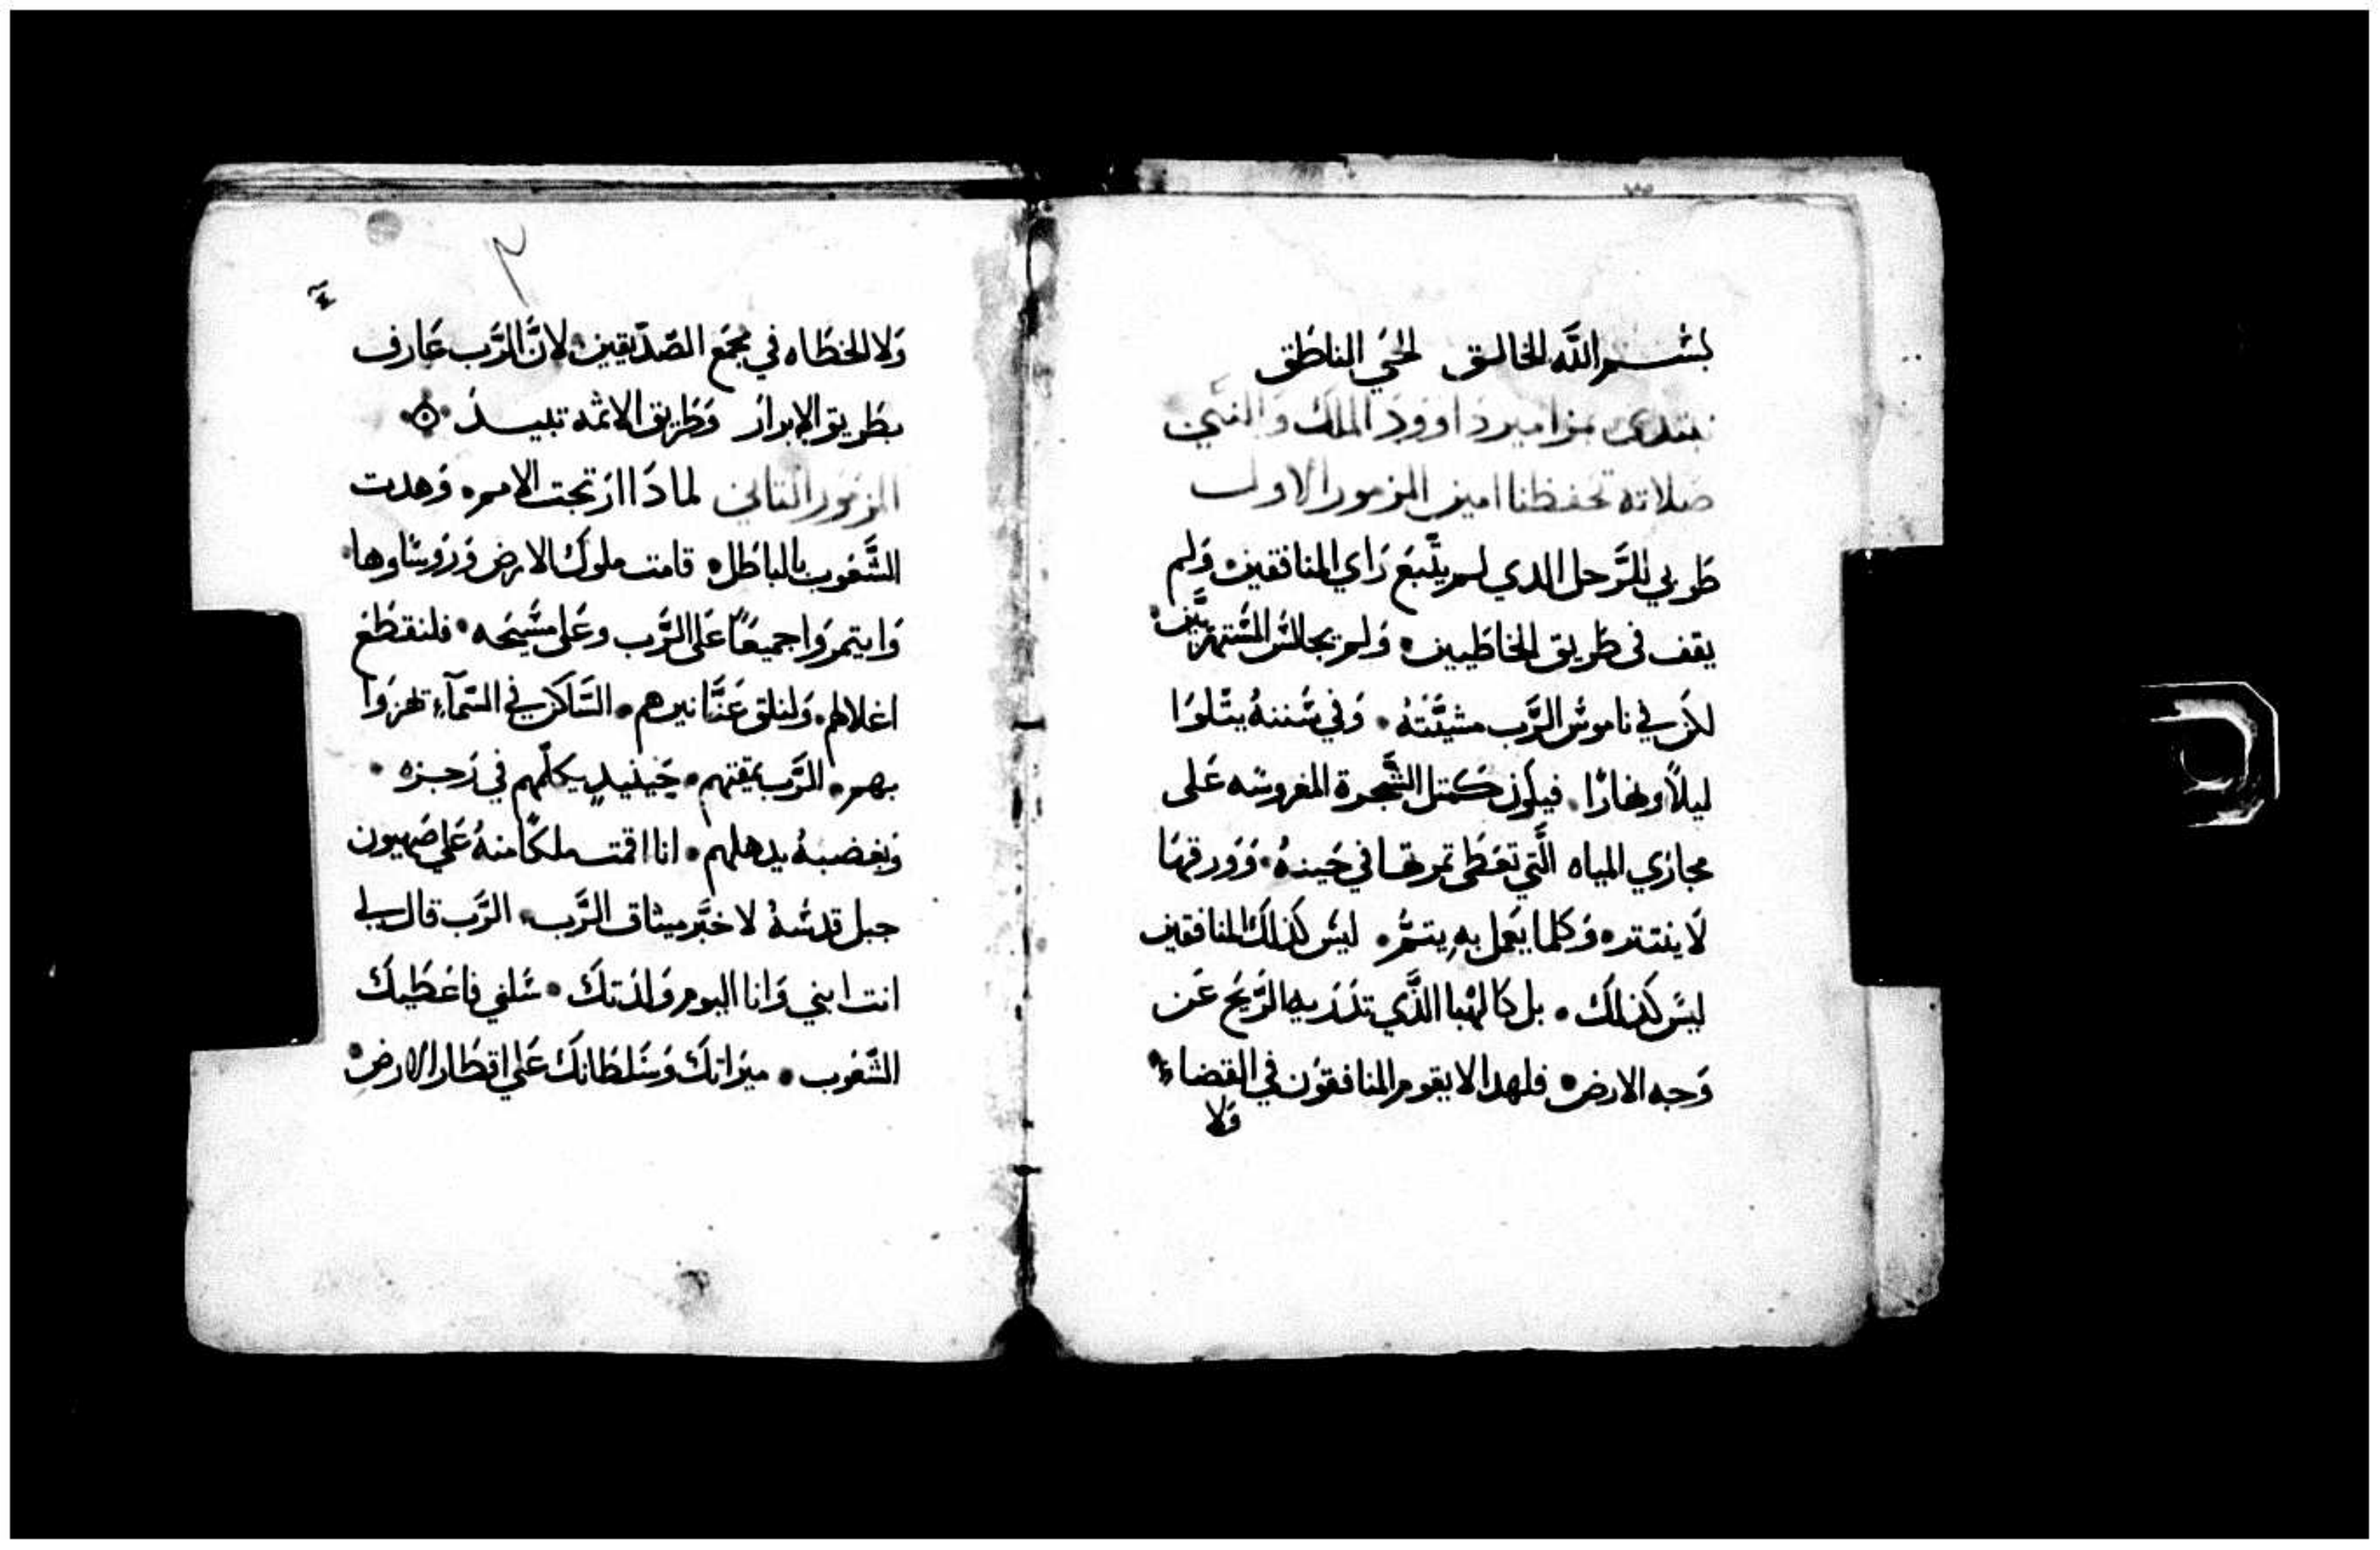 بسم الله الخالق الحي الناطق
نبتدى بمزامير داوود الملك والنبي
صلاته تحفظنا امين المزمور الاول
طوبي للرجل الدي لم يتبع راي المنافقين ولم
يقف في طريق الخاطيين ولم يجالس المستهزيين
لكن في ناموس الرب مشيئته وفي سننه يتلوا
ليلاً ونهارًا فيكون كمتل الشجرة المغروسه على
مجاري المياه الَّتي تعطى تمرتها في حينه وورقها
لا ينتتر وكلما يعمل به يتم ليس كذلك المنافقين
ليس كذلك بل كالهبا الذَّي تذريه الرّيح عن
وجه الارض فلهدا لا يقوم المنافقون في القضاء
ولا
٤
ولا الخطاه في مجمع الصّدّيقين لانَّ الرَّب عارف
بطريق الابرار وطريق الاثمه تبيد
المزمور التاني لمادا ارتجت الامم وهدت
الشَّعوب بالباطل قامت ملوك الارض وروساوها
وايتمروا جميعًا على الرَّب وعلى مسَّيحه فلنقطع
اغلالهم ولنلق عنَّا نيرهم السَّاكن في السّمآءِ تهزوا
بهم الرَّب يمقتهم حينيدٍ يكلّمهم في رجزه
وبغضبهُ يدهلهم انا اقمت ملكًا منهُ علي صهيون
جبل قدسهُ لاخبَّر ميثاق الرَّب الرَّب قال لي
انت ابني وانا اليوم ولدتك سلني فاعطيك
الشّعوب ميراتك وسلطانك علي اقطار الارض